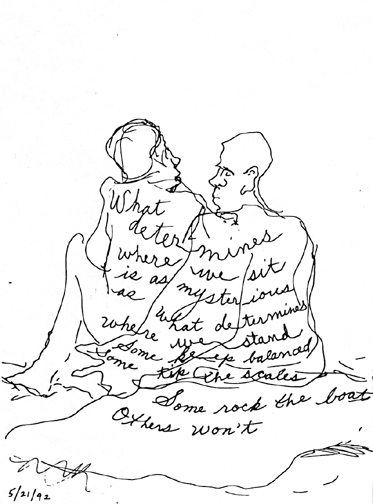 What
deter-mines
where we sit
is as mysterious
as what determines
where we stand
Some keep balanced
Some tip the scales
Some rock the boat
Others won't
5/21/92